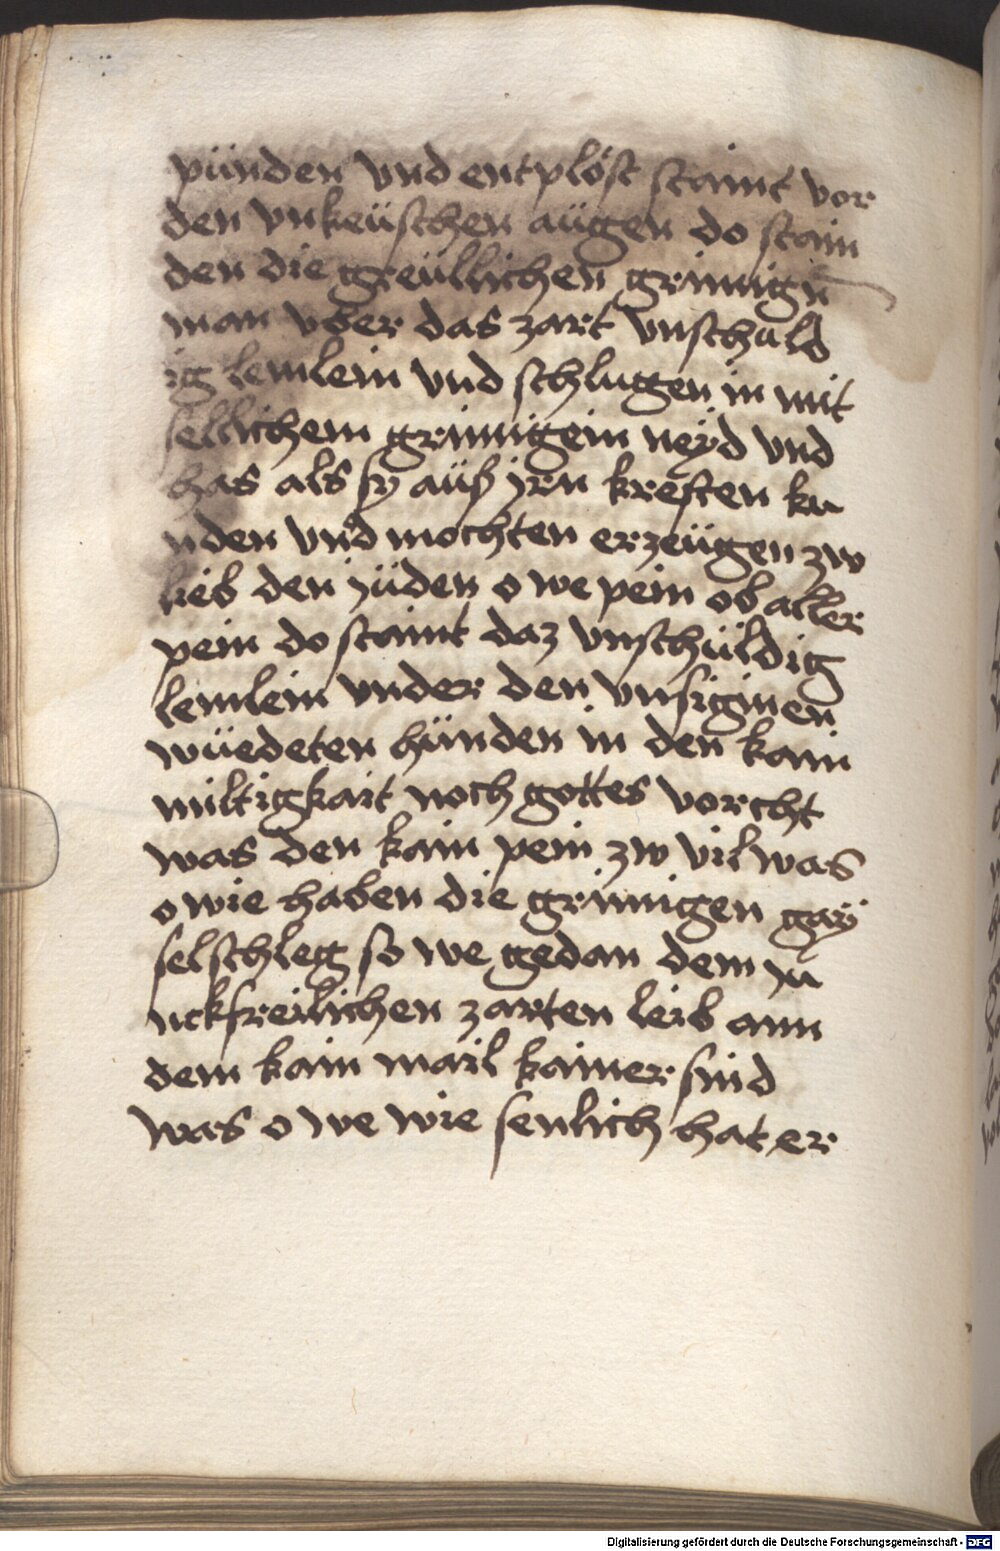 pünden vnd entplöst staint vor
den vnkeüschen aügen do stain
den die greüllichen grimign̄
man vber das zart vnschuld
ig lemlein vnd schlugen in mit
sellichem grimigem neyd vnd
has als sy aüß jrn kresten ku
nden vnd mochten erzeügen zw
lieb den jüden o we pein ob aller
pein do staint daz vnschüldig
lemlein vnder den vnsiginen
wüedeten hünden in den kain
miltigkait noch gottes vorcht
was den kain pein zw vil was
o wie haben die grimigen gay
selschleg so we gedan dem
nckfreilichen zarten leib ann
dem kain mail kainer sind
was o we wie senlich hat er
Digitalisierung gefördert durch die Deutsche Forschungsgemeinschaft - DFG